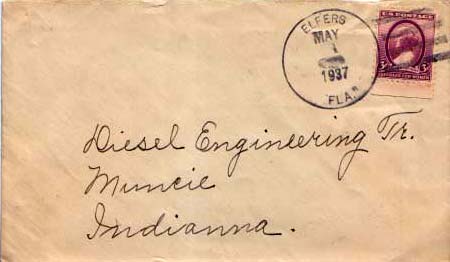 ELFERS
MAY
1
1937
FLA.
U.S. POSTAGE
3¢ 3¢
SUFFRAGE FOR WOMEN
Diesel Engineering Tr.
Muncie
Indianna.